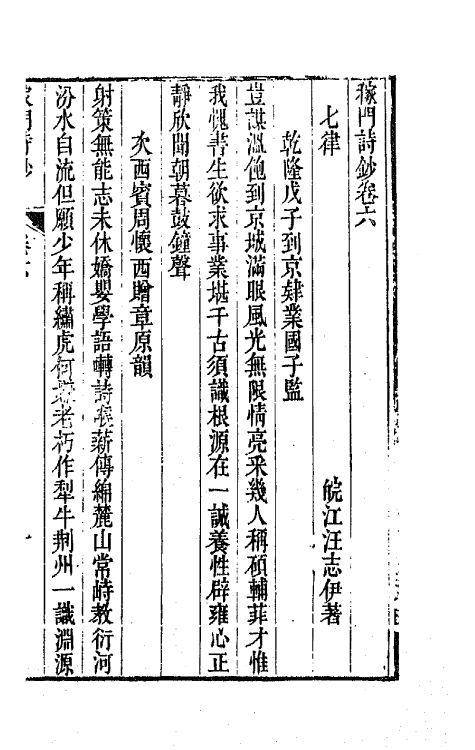 稼門詩鈔卷六
皖江汪志伊著
七律
乾隆戊子到京肄業國子監
豈謀溫飽到京城滿眼風光無限情亮采幾人稱碩輔菲才惟
我愧書生欲求事業堪千古須識根源在一誠養性辟雍心正
靜欣聞朝暮鼓鐘聲
次西賓周懷西贈章原韻
射策無能志未休嬌嬰學語囀詩喉薪傳綿麓山常峙教衍河
汾水自流但願少年稱繡虎何老朽作犁牛荆州一識淵源
稼門詩鈔